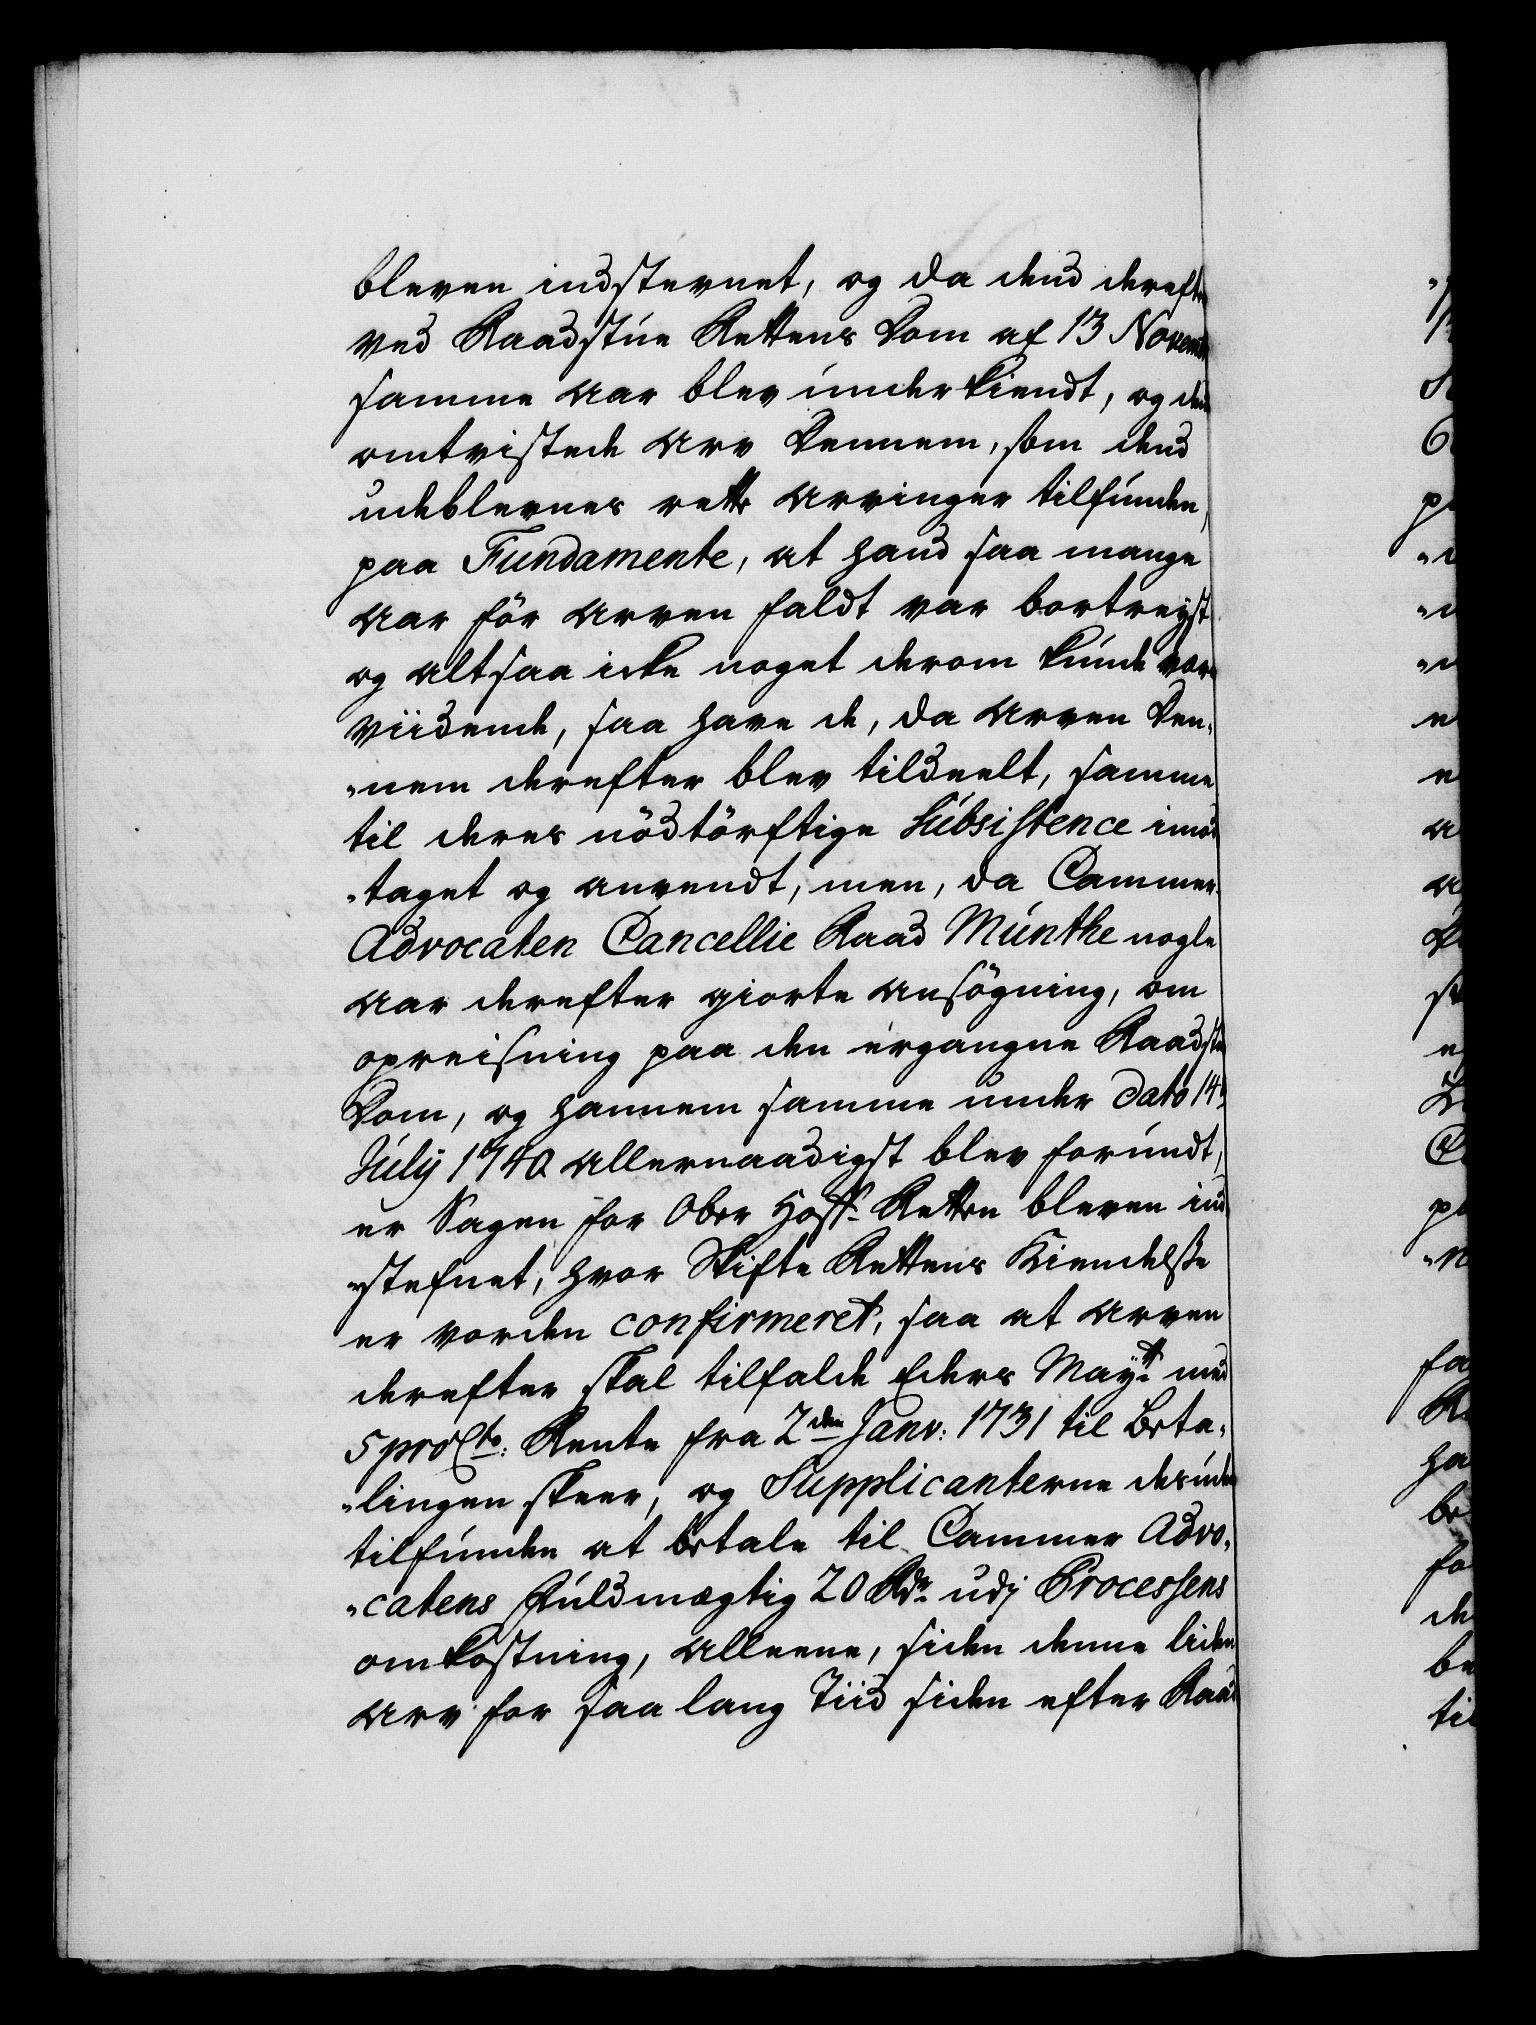 bleven indstevnet, og da dend derefter
ved Raadstue Rettens Dom af 13 Novemb
samme Aar blev underkiendt, og den
omtvistede Arv Dennem, som dend
udeblevnes rette Arvinger tilfunden,
paa Fundamente, at hand saa mange
Aar för Arven faldt var bortreyst
og altsaa icke noget derom kunde være
viidende, saa have de, da Arven Den-
"nem derefter blev tildeelt, samme
til deres nödtörftige Subsistence imod
"taget og anvendt, men, da Cammer
Advocaten Cancellie Raad Munthe nogle
Aar derefter giorte Ansögning, om
opreisning paa den ergangne Raadstue
Dom, og hannem samme under dato 14de
July 1740 Allernaadigst blev forundt,
er Sagen for Ober Hoff-Retten bleven ind
"stefnet, hvor Skifte Rettens Kiendelsße
er vorden confirmeret, saa at Arven
derefter skal tilfalde Eders Maytt med
5 proCto: Rente fra 2den Janv: 1731 til Beta-
"lingen skeer, og Supplicanterne desuden
tilfunden at betale til Cammer Advo-
"catens Fuldmægtig 20 Rdr udj Processens
omkostning, Alleene, siden denne liden
Arv for saa lang Tiid siden efter Raad